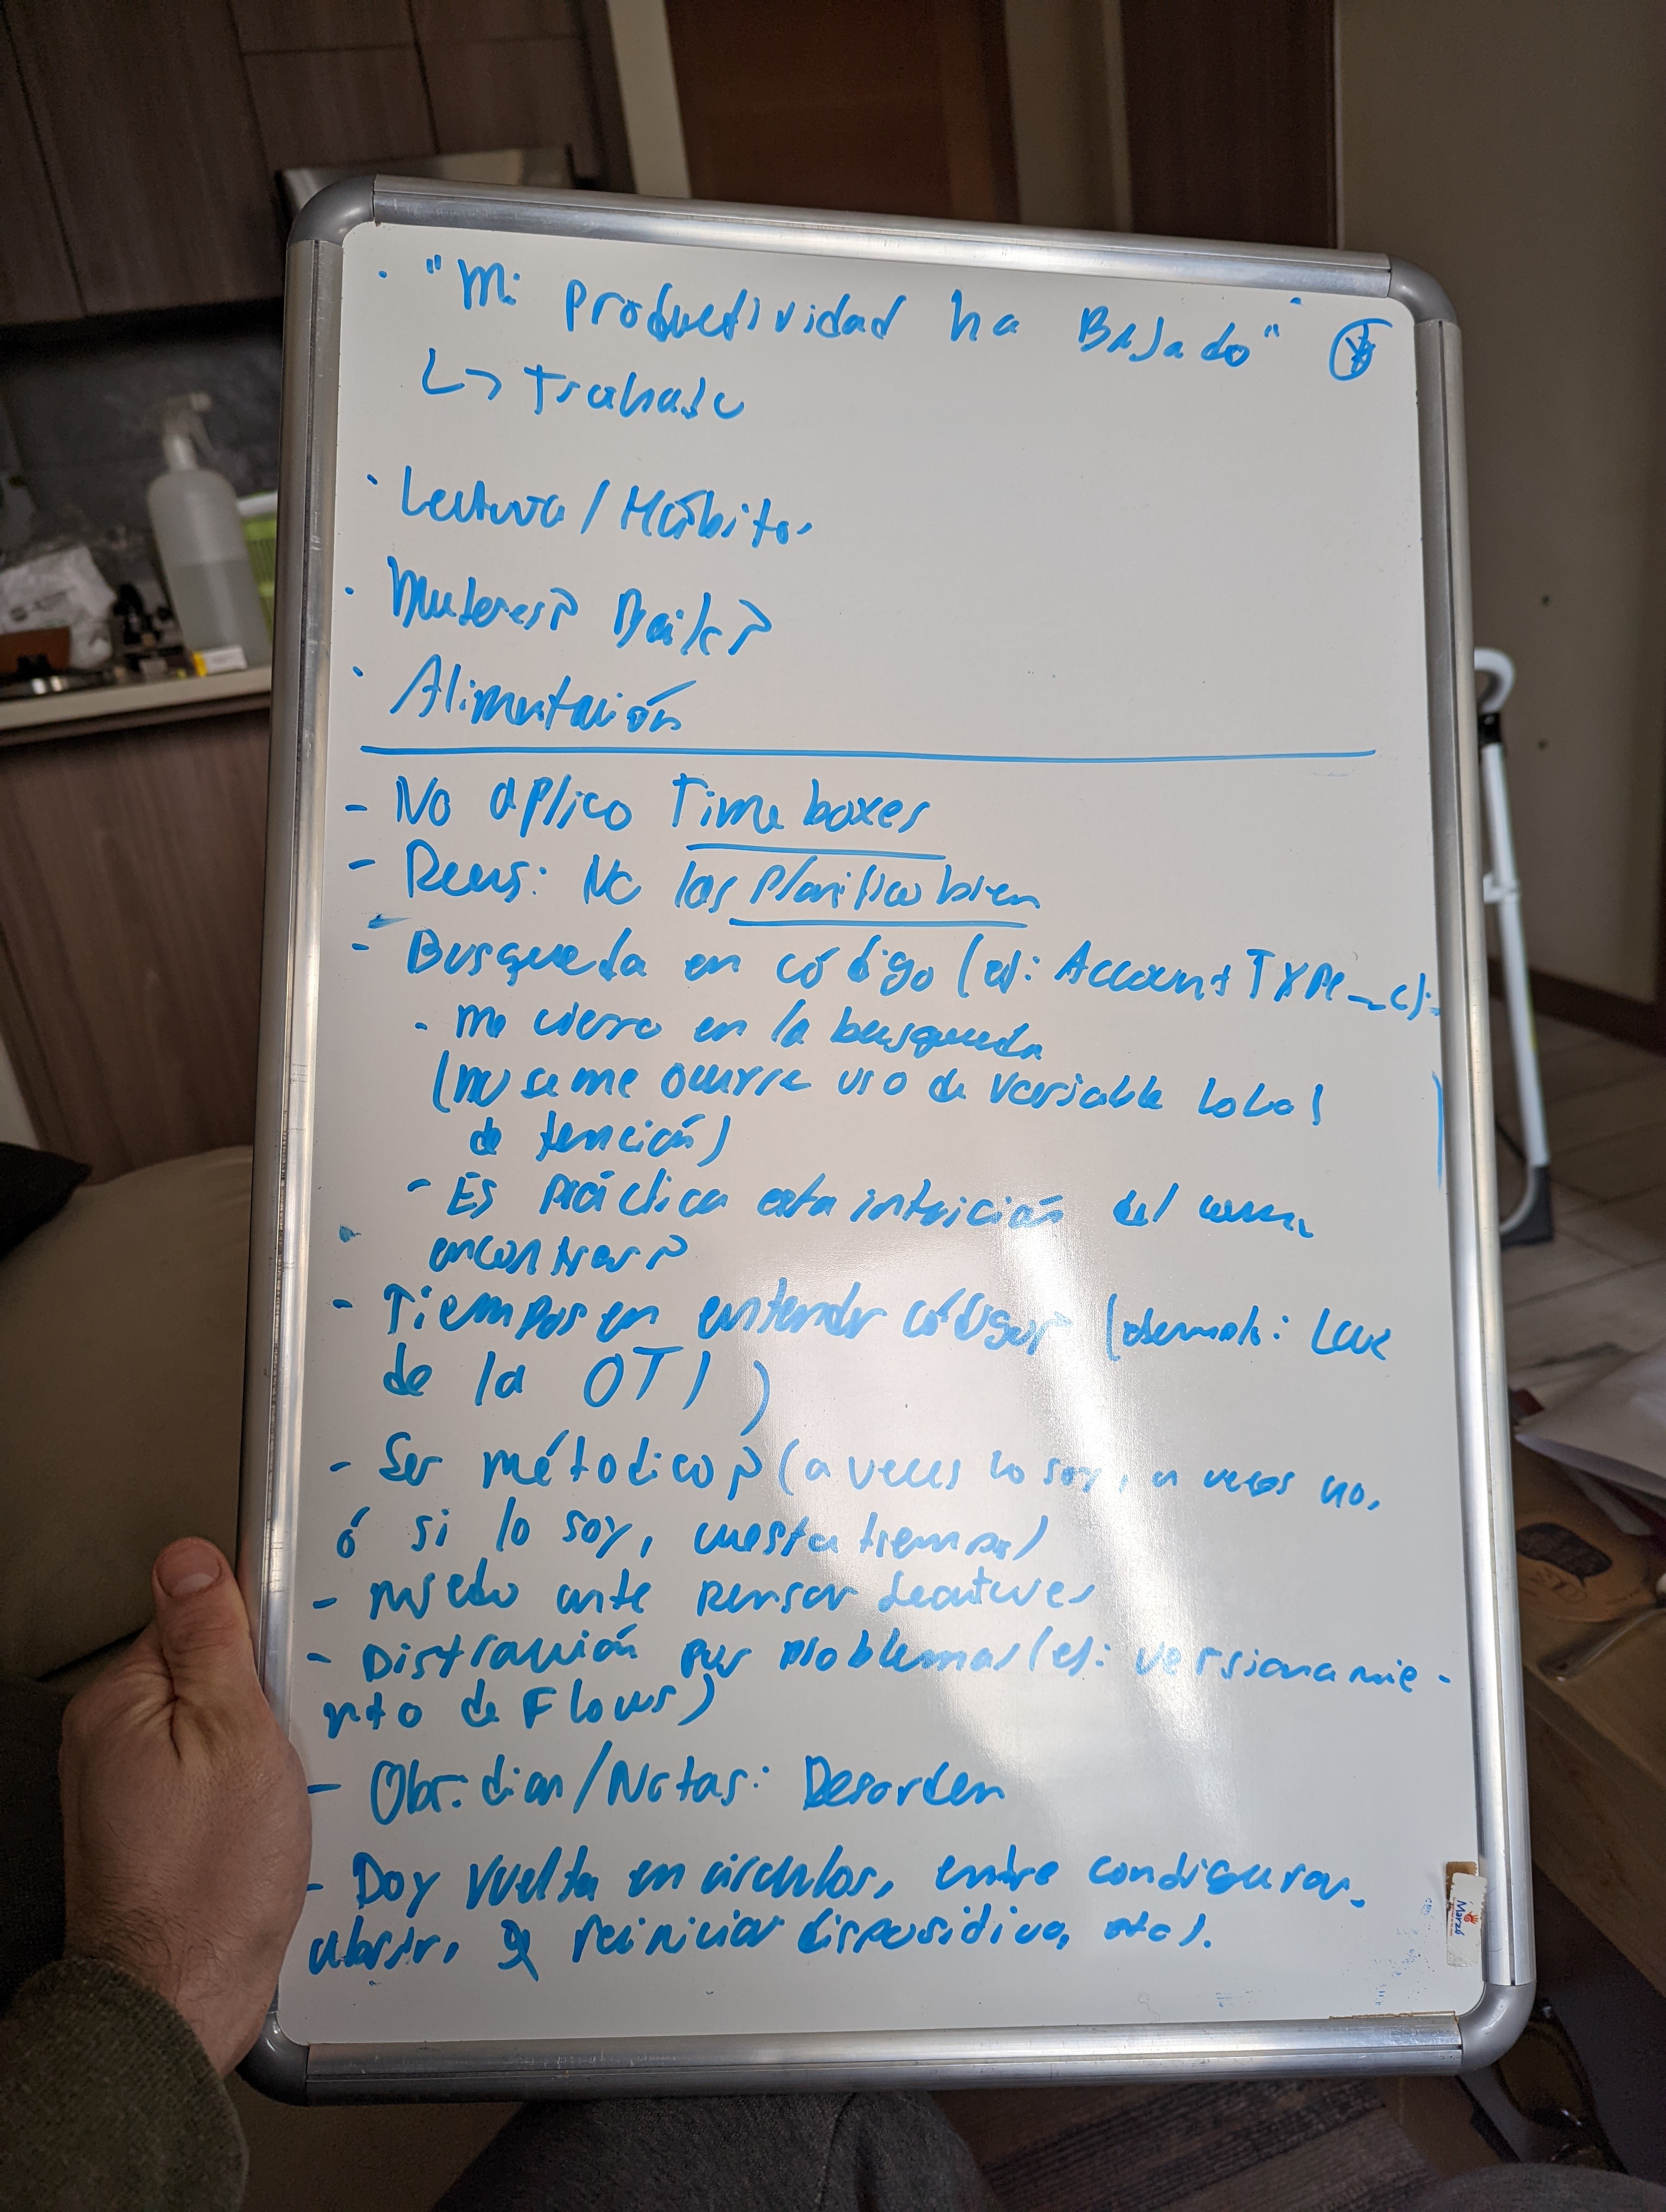 · "Mi productividad ha Bajado"
↳ Trabajo
· Lectura / Hábitos
· Mujeres? Baile?
· Alimentación
- No aplico Time boxes
- Reus: No las planifico bien
- Busqueda en código (ej: Account TYPE__c):
- me cierro en la busqueda
(no se me ocurre uso de variable local
de )
- Es práctica esta intuición del
encontrar?
- Tiempos en entender código? (ejemplo: LWC
de la OT1)
- Ser métodico? (a veces lo soy, a veces no,
ó si lo soy, cuesta tiempo)
- miedo ante pensar features
- Distracción por problemas (ej: versionamie-
nto de Flows)
- Obsidian/Notas: Desorden
- Doy vuelta en circulos, entre configurar,
abrir, reiniciar dispositivo, etc).
Marzo